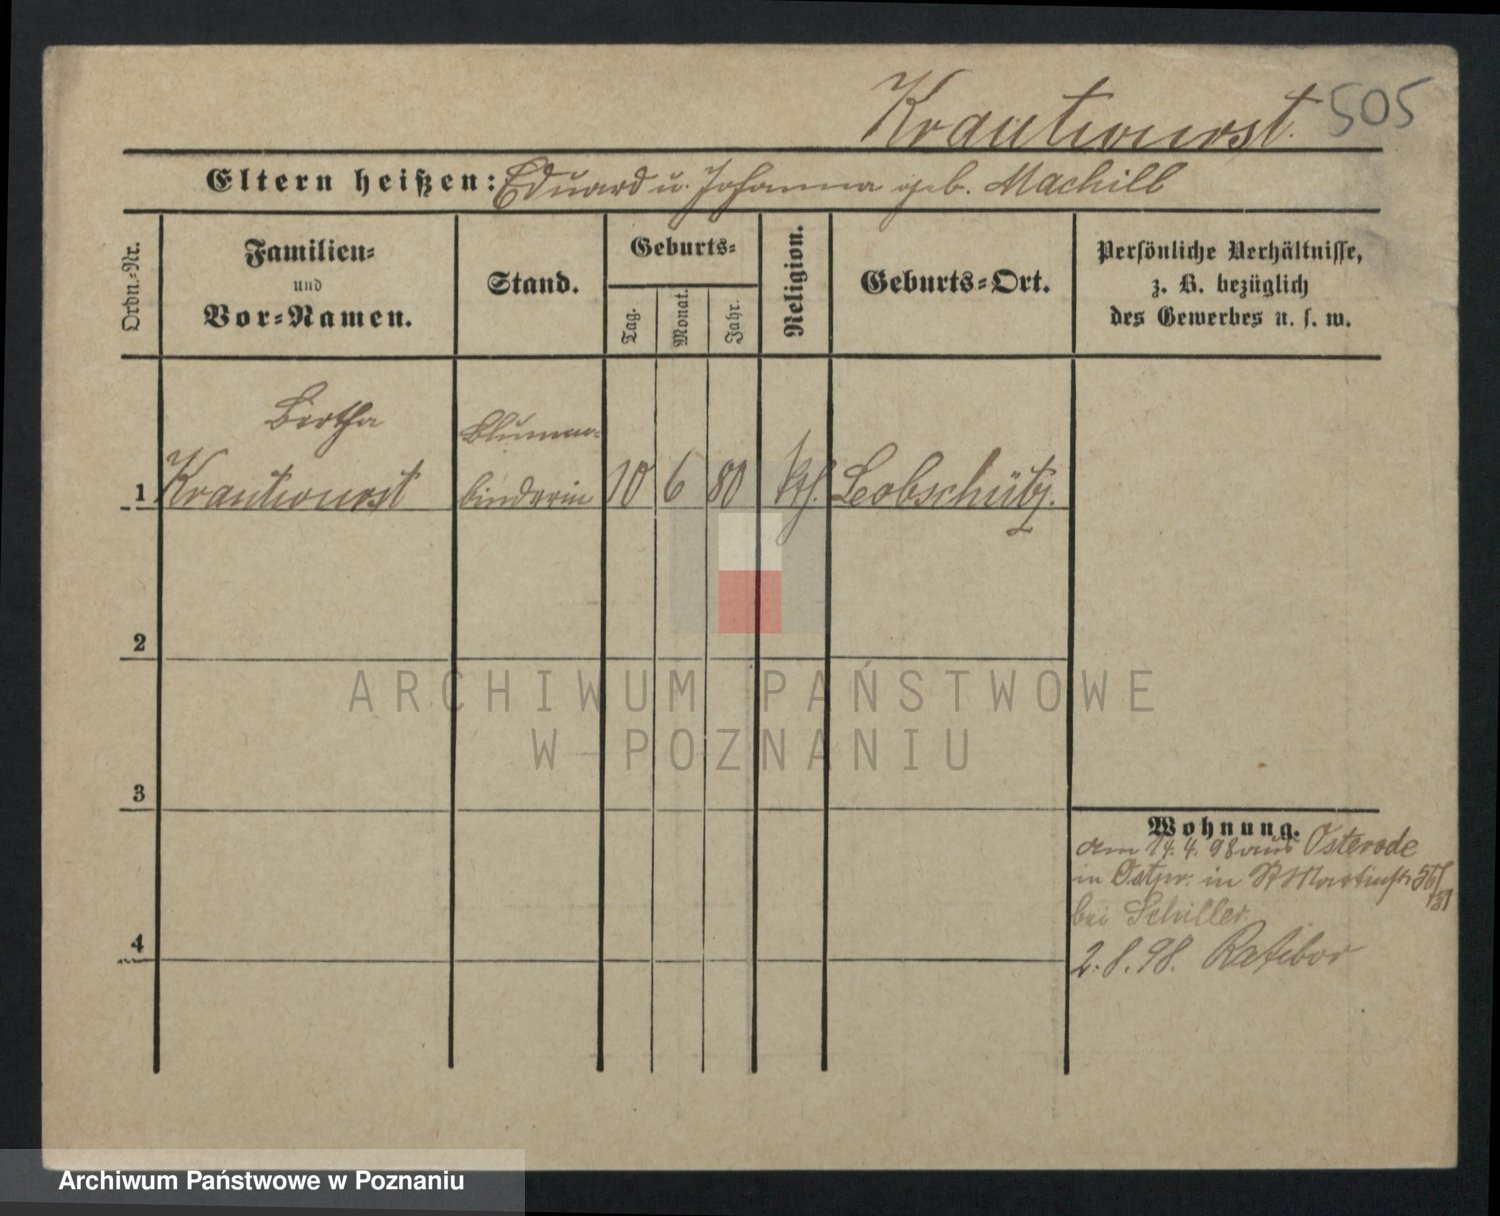 Krautwurst. 505
Eltern heißen: Eduard u. Johanna geb. Machill
Ordn.-Nr.
Familien-
und
Vor-Namen.
Stand.
Geburts-
Tag.
Monat.
Jahr.
Religion.
Geburts-Ort.
Persönliche Verhältnisse,
z. B. bezüglich
des Gewerbes u. s. w.
Bertha
Blumen-
1 Krautwurst binderin 10 6 80 kth. Leobschütz.
2
3
4
Wohnung.
am 14. 4. 98 aus Osterode
in Ostpr. in St Martinstr 56
bei Schiller
2. 8. 98. Ratibor
ARCHIWUM PAŃSTWOWE
W POZNANIU
Archiwum Państwowe w Poznaniu